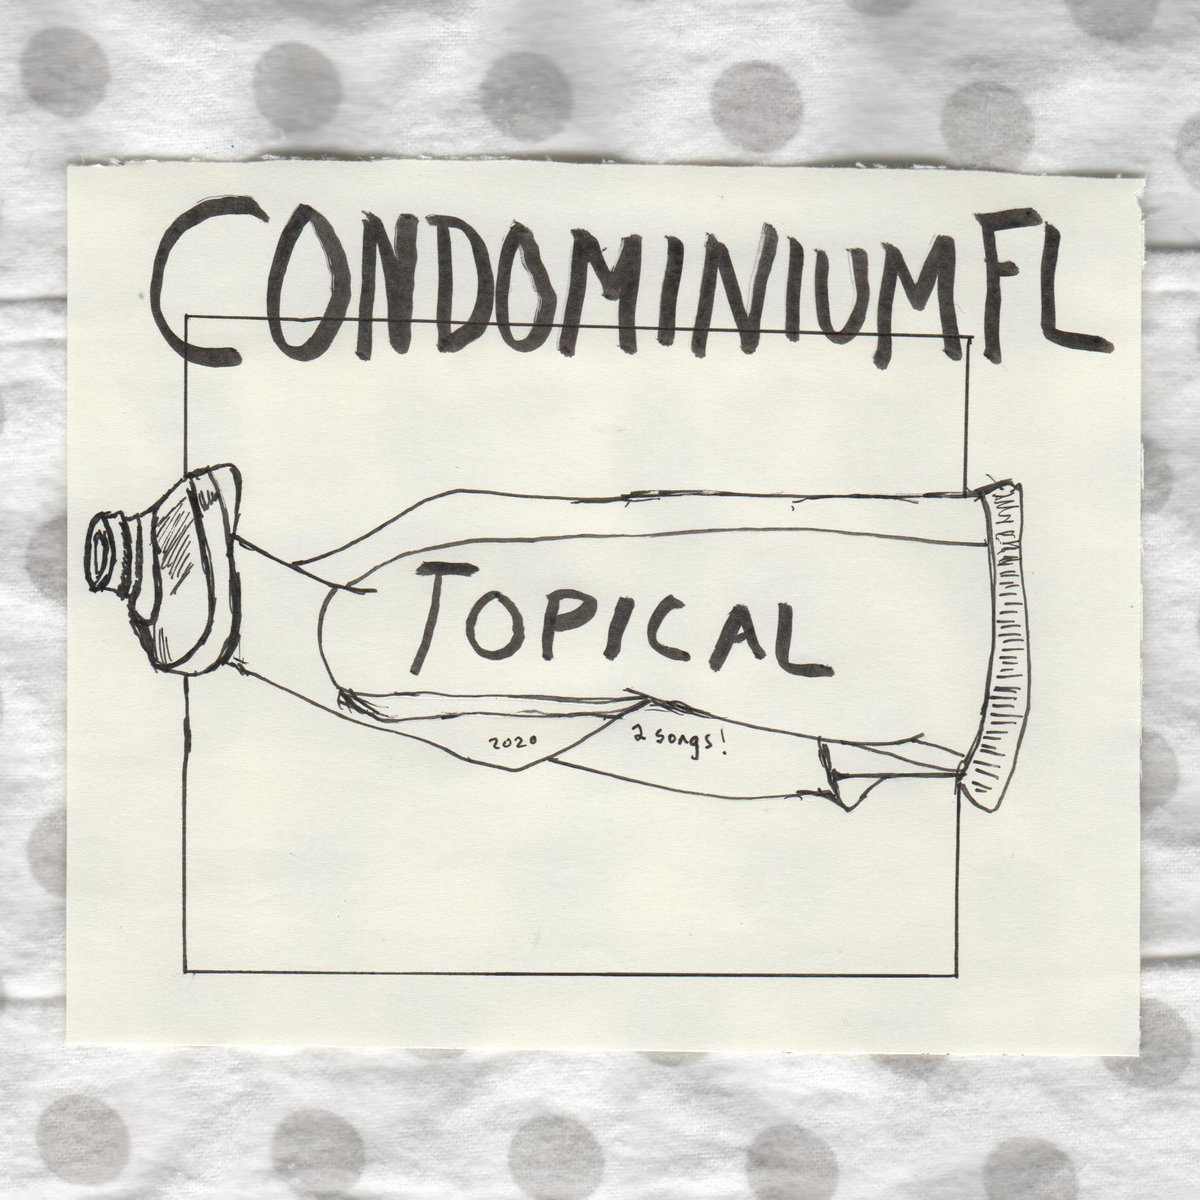 CONDOMINIUM FL
TOPICAL
2020
2 songs!